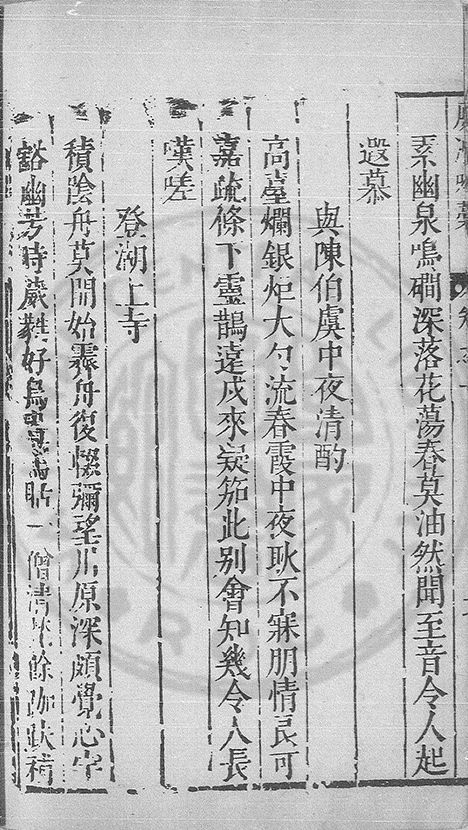 素幽泉鳴磵深落花蕩春莫油然聞至音令人起
遐慕
與陳伯虞中夜清酌
高臺爛銀炬大勺流春霞中夜耿不寐朋情良可
嘉疏條下靈鵲遠戍來疑笳此别會知幾令人長
嘆嗟
登湖上寺
積陰舟莫開始霽舟復憽彌望川原深頗覺心宇
豁幽芳時葳甤好鳥 貼一僧清 餘跏趺